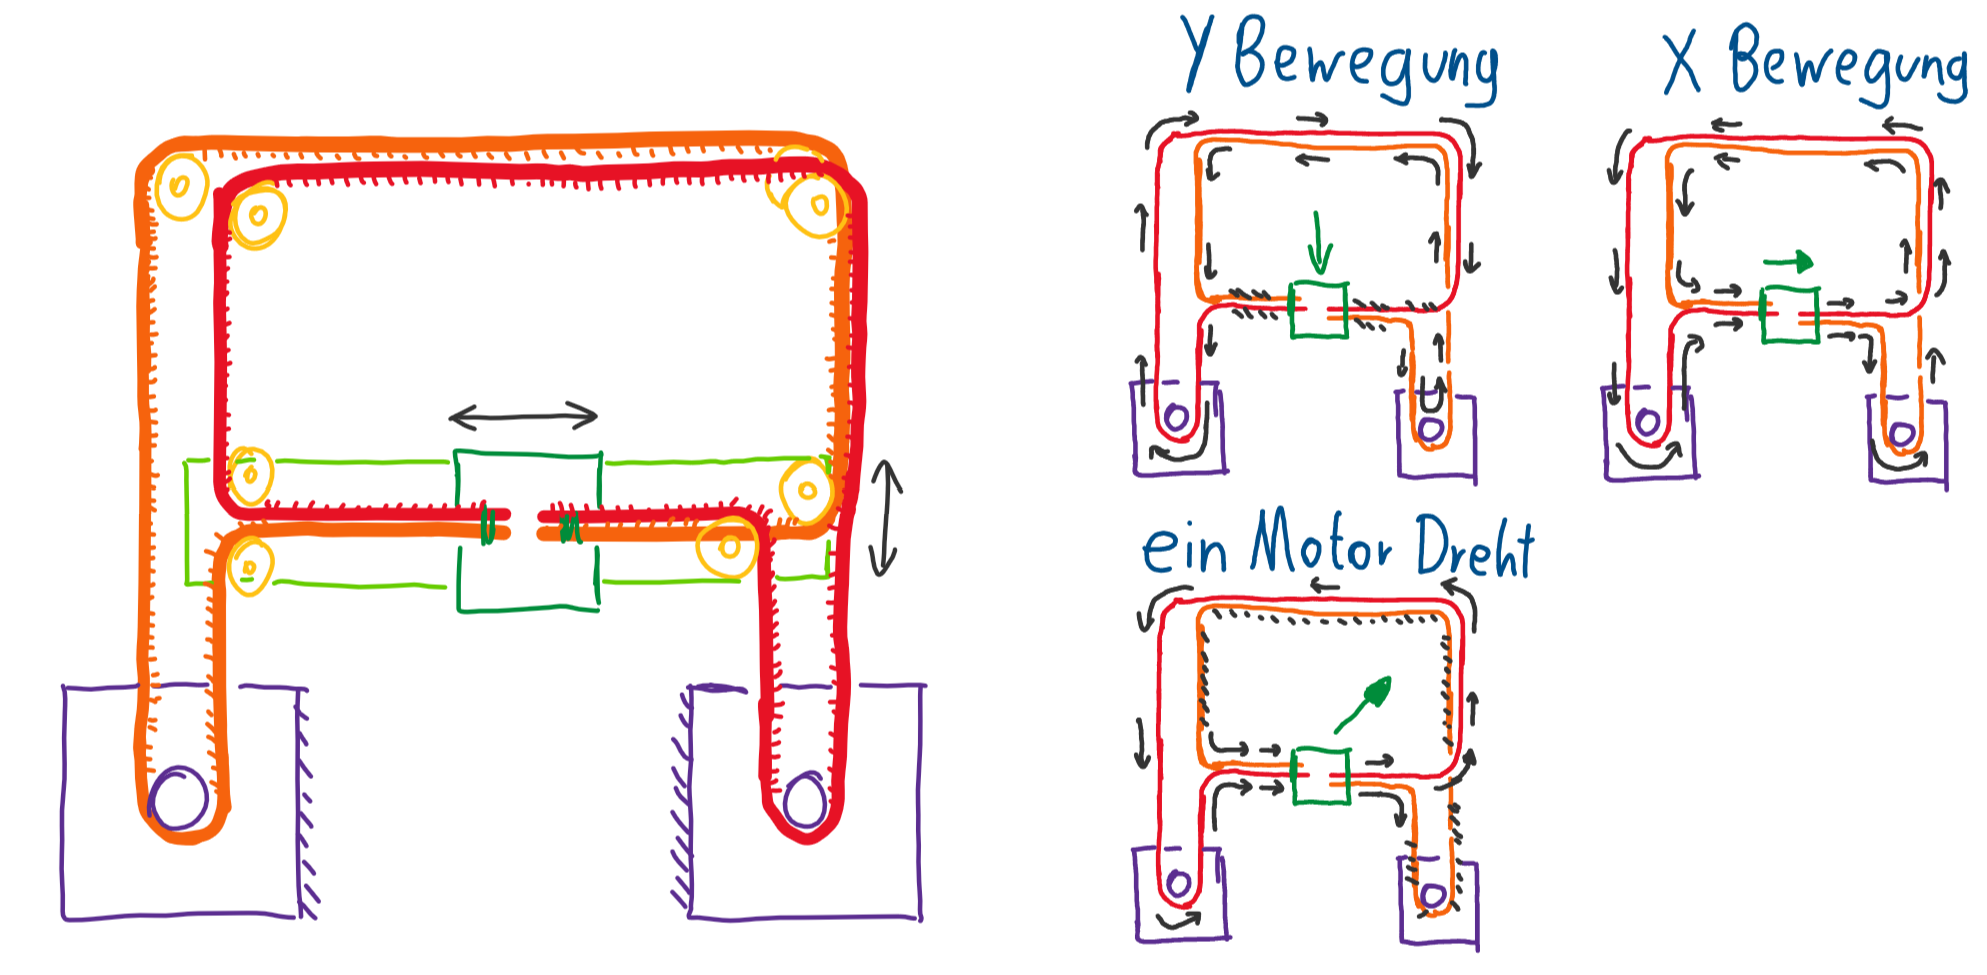 Y Bewegung
X Bewegung
ein Motor Dreht